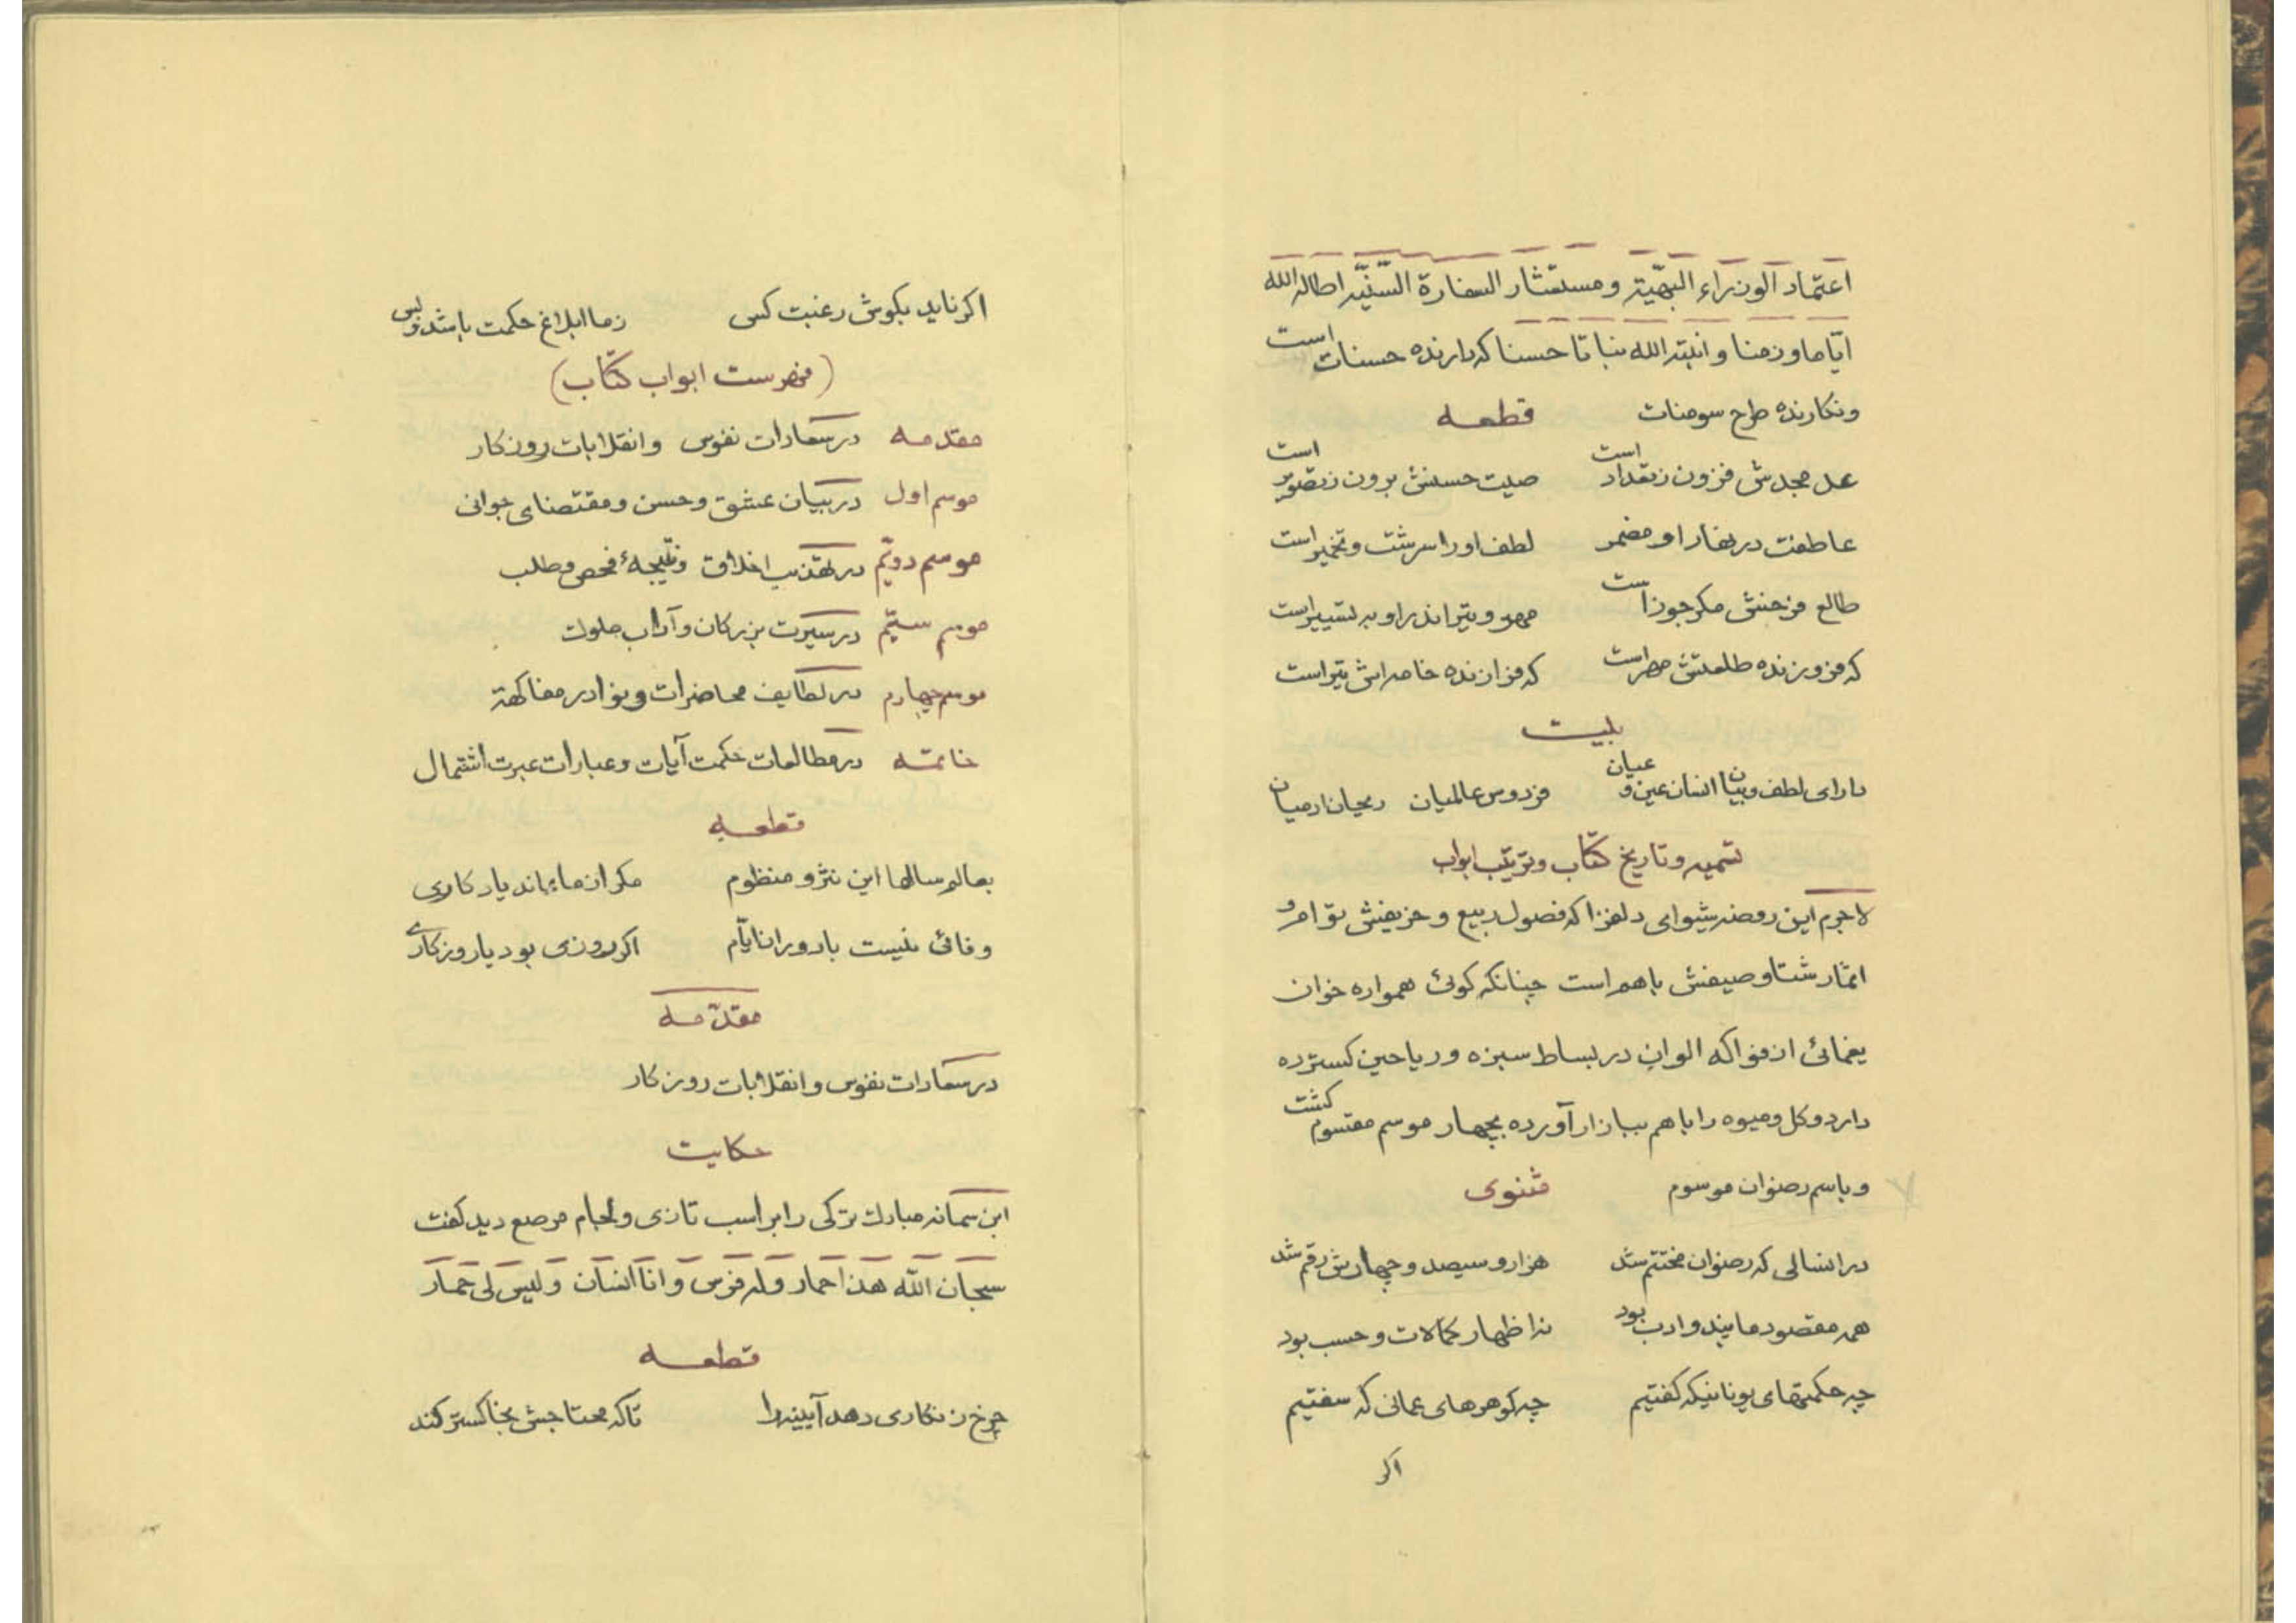 اعتماد الوزراء البهیّة ومستشار السفارة السّنیّه اطاله الله
ایّاما وزمنا وانبته الله نباتا حسنا که دارنده حسنات است
ونکارنده طرح سومنات قطعه
عد مجدش فزون زتعداد است صیت حسنش برون زتصویر است
عاطفت در نهاد او مضمر لطف او را سرشت وتخمیر است
طالع فرخنش مکر جوزا است مهر وتیر اندر او به تسییر است
که فروزنده طلعتش مهر است که فرازنده خامه اش تیر است
بیت
دارای لطف وبیان انسان عین وعیان فردوس عالمیان ریحان ادمیان
تسمیه وتاریخ کتاب وترتیب ابواب
لاجرم این روضه شیوای دلفزا که فصول ربیع وخریفش توام و
اثمار شتا وصیفش باهم است چنانکه کوئی همواره خوان
یغمائی از فواکه الوان در بساط سبزه وریاحین کسترده
دارد وکل ومیوه را باهم ببازار آورده بچهار موسم مقسوم کشت
وباسم رضوان موسوم مثنوی
در انسالی که رضوان مختتم شد هزار وسیصد وچهارش رقم شد
همه مقصود ما پند وادب بود نه اظهار کمالات وحسب بود
چه حکمتهای یونانیکه کفتیم چه کوهرهای عمانی که سفتیم
اکر
اکر ناید بکوش رغبت کس زما ابلاغ حکمت باشد وبس
(فهرست ابواب کتاب)
مقدمه در سعادات نفوس وانقلابات روزکار
موسم اول در بیان عشق وحسن ومقتضای جوانی
موسم دویّم در تهذیب اخلاق ونتیجهٔ فحص وطلب
موسم سیّم در سیرت بزرکان وآداب ملوک
موسم چهارم در لطایف محاضرات ونوادر مفاکهة
خاتمه در مطالعات حکمت آیات وعبارات عبرت اشتمال
قطعه
بعالم سالها این نثر ومنظوم مکر از ما بماند یادکاری
وفائی نیست با دوران ایّام اکر روزی بود یا روزکاری
مقدّمه
در سعادات نفوس وانقلابات روزکار
حکایت
ابن سمانه مبارک ترکی را بر اسب تازی ولجام مرصع دید کفت
سبحان اللّه هذا حمار وله فرس وانا انسان ولیس لی حمار
قطعه
چرخ زنکاری دهد آیینه را تاکه محتاجش بخاکستر کند